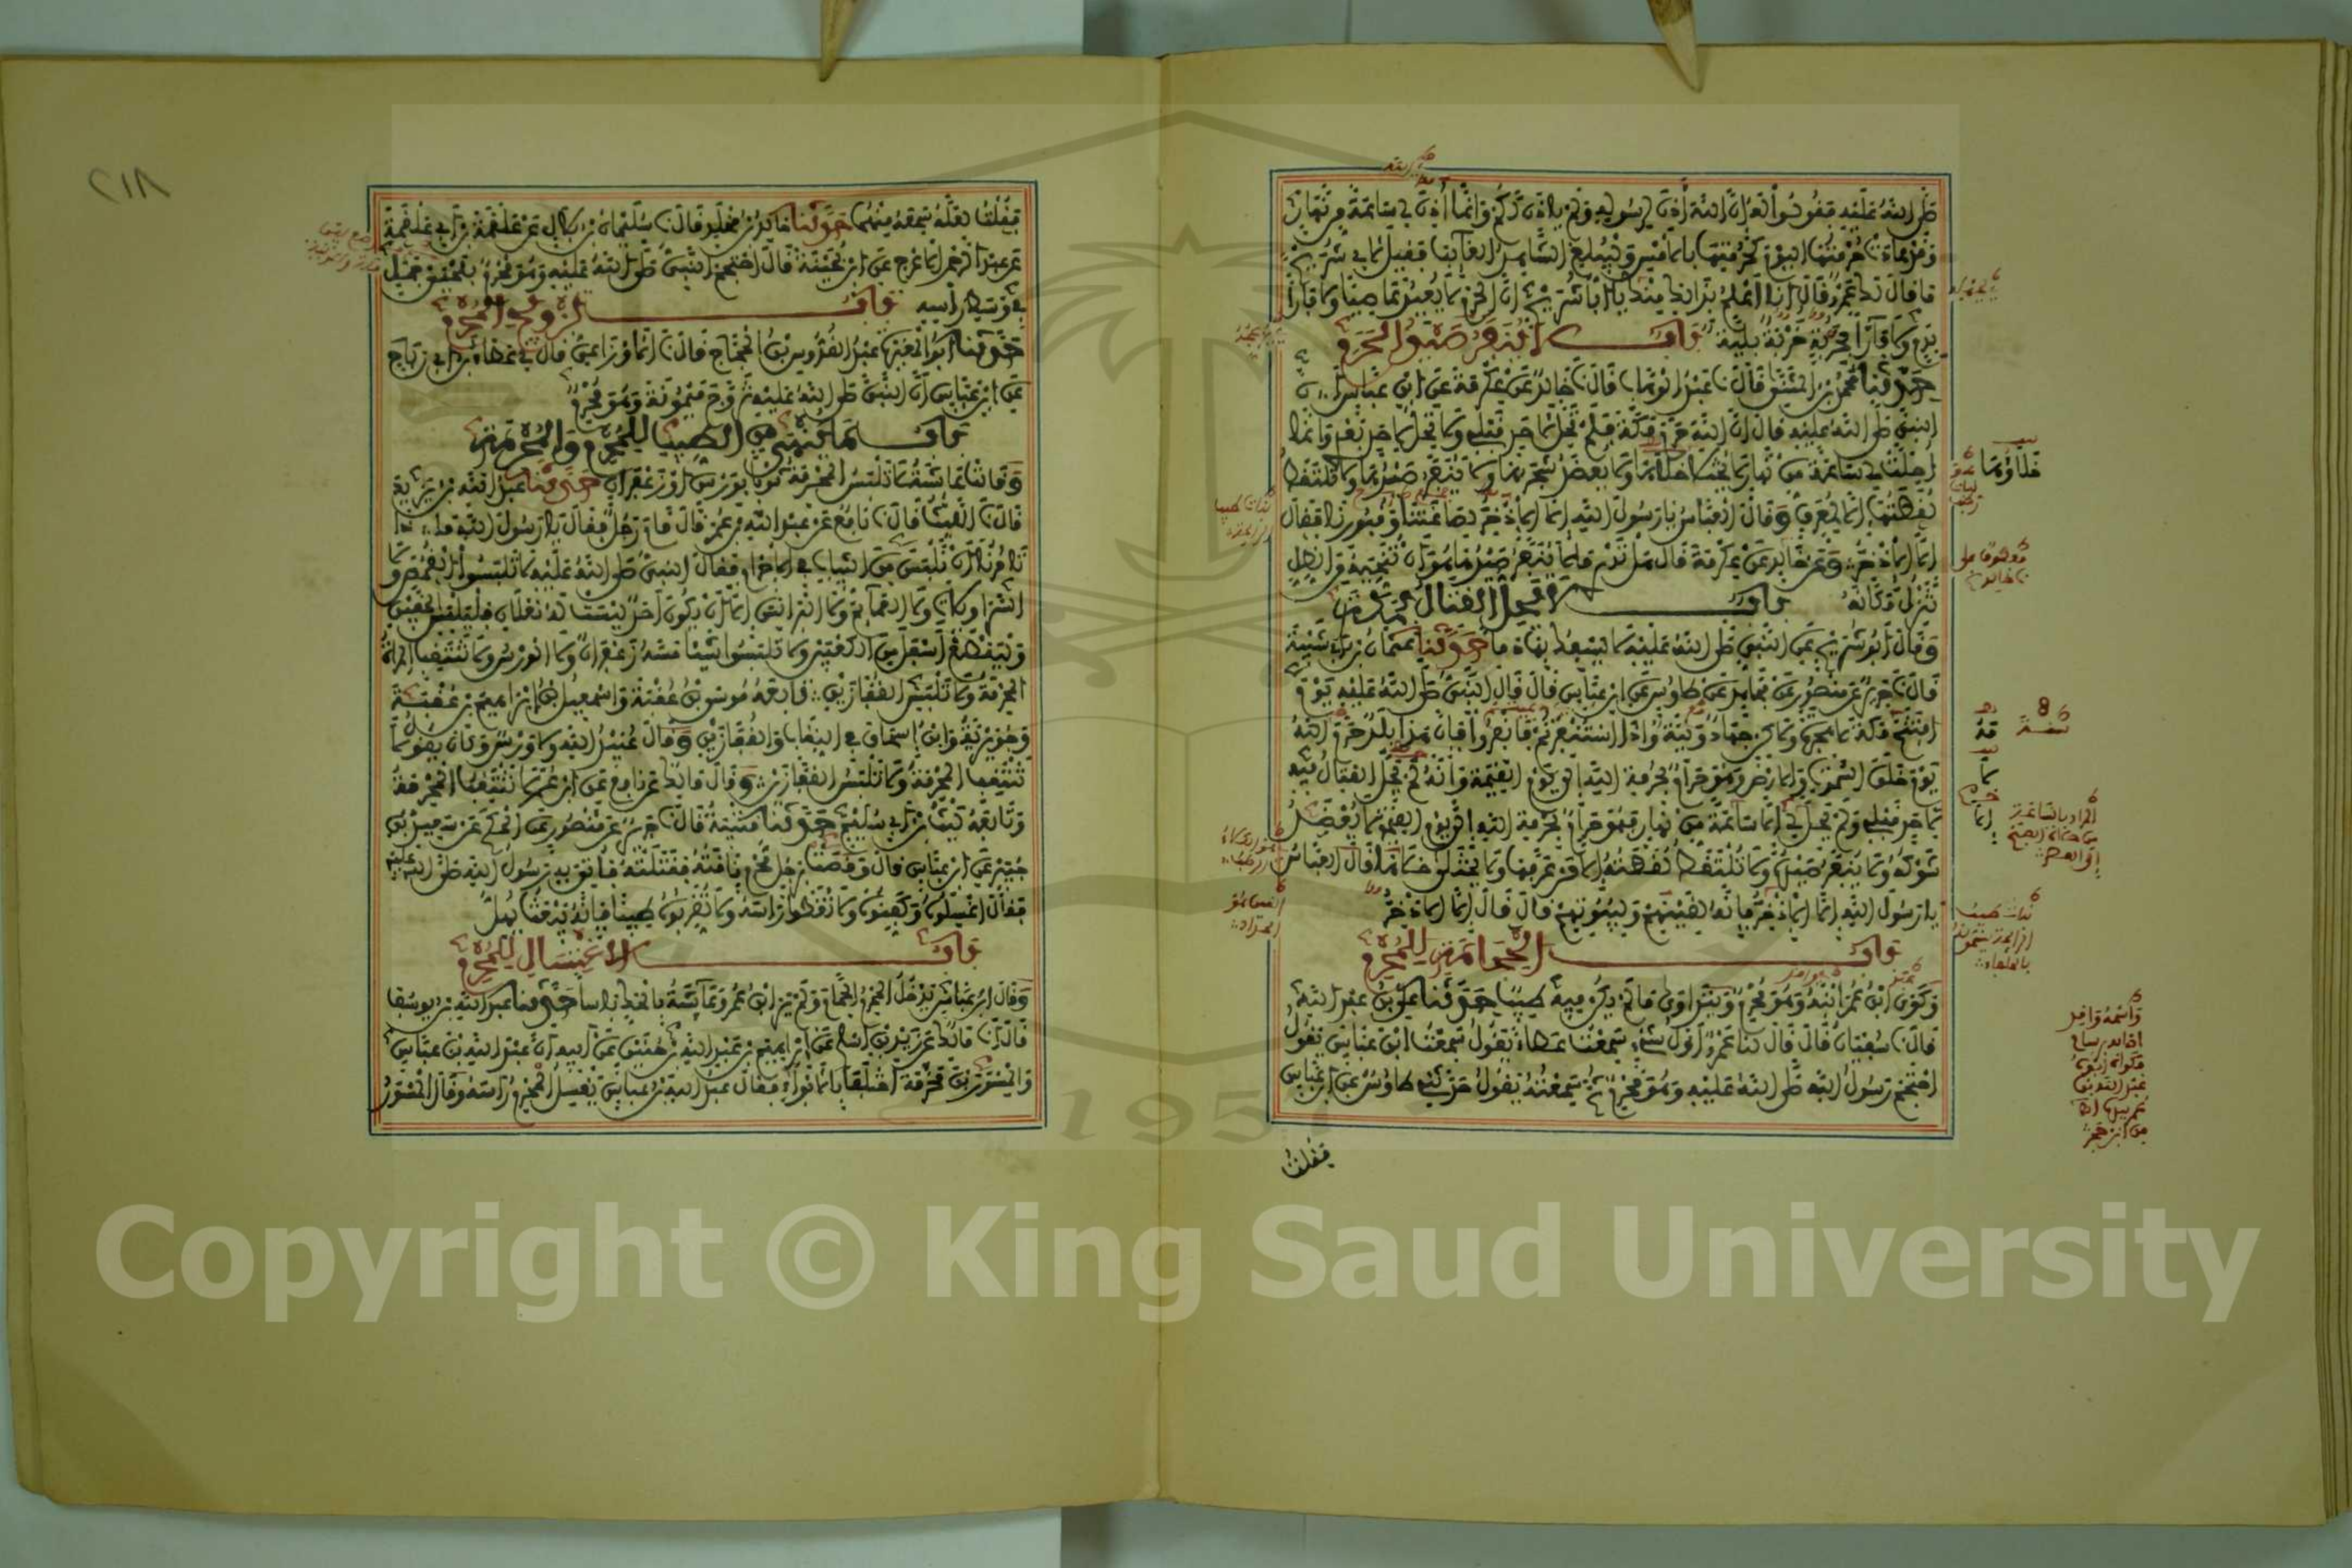 صلى الله عليه فقولوا له إن الله أذن لرسوله ولم يأذن لكم وإنما أذن لي ساعة من نهار
وقد عادت حرمتها اليوم كحرمتها بالأمس وليبلغ الشاهد الغائب فقيل لأبي شريح
ما قال لك عمرو قال أنا أعلم بذلك منك يا أبا شريح إن الحرم لا يعيذ عاصيا ولا فارا
بدم ولا فارا بخربة خربة بلية باب لا ينفر صيد الحرم
حدثنا محمد بن المثنى قال نا عبد الوهاب قال نا خالد عن عكرمة عن ابن عباس أن
النبي صلى الله عليه قال إن الله حرم مكة فلم تحل لأحد قبلي ولا تحل لأحد بعدي وإنما
أحلت لي ساعة من نهار لا يختلى خلاها ولا يعضد شجرها ولا ينفر صيدها ولا تلتقط
لقطتها إلا لمعرف وقال العباس يا رسول الله إلا الإذخر لصاغتنا وقبورنا فقال
إلا الإذخر وعن خالد عن عكرمة قال هل تدري ما لا ينفر صيدها هو أن تنحيه من الظل
تنزل مكانه باب لا يحل القتال بمكة
وقال أبو شريح عن النبي صلى الله عليه لا يسفك بها دما حدثنا عثمان بن أبي شيبة
قال نا جرير عن منصور عن مجاهد عن طاوس عن ابن عباس قال قال النبي صلى الله عليه يوم
افتتح مكة لا هجرة ولكن جهاد ونية وإذا استنفرتم فانفروا فإن هذا بلد حرم الله
يوم خلق السموات والأرض وهو حرام بحرمة الله إلى يوم القيمة وإنه لم يحل القتال فيه
لأحد قبلي ولم يحل لي إلا ساعة من نهار فهو حرام بحرمة الله إلى يوم القيمة لا يعضد
شوكه ولا ينفر صيده ولا تلتقط لقطته إلا من عرفها ولا يختلى خلاها قال العباس
يا رسول الله إلا الإذخر فإنه لقينهم ولبيوتهم قال قال إلا الإذخر
باب الحجامة للمحرم
وكوى ابن عمر ابنه وهو محرم ويتداوى ما لم يكن فيه طيب حدثنا علي بن عبد الله
قال نا سفيان قال قال لنا عمرو أول شيء سمعت عطاء يقول سمعت ابن عباس يقول
احتجم رسول الله صلى الله عليه وهو محرم ثم سمعته يقول حدثني طاوس عن ابن عباس
فقلت
خلاؤها
٢١٨
فقلت لعله سمعه منهما حدثنا خالد بن مخلد قال نا سليمان بن بلال عن علقمة بن أبي علقمة
عن عبد الرحمن الأعرج عن ابن بحينة قال احتجم النبي صلى الله عليه وهو محرم بلحيي جمل
في وسط رأسه باب تزويج المحرم
حدثنا أبو المغيرة عبد القدوس بن الحجاج قال نا الأوزاعي قال ني عطاء بن أبي رباح
عن ابن عباس أن النبي صلى الله عليه تزوج ميمونة وهو محرم
باب ما ينهى من الطيب للمحرم والمحرمة
وقالت عائشة لا تلبس المحرمة ثوبا بورس أو زعفران حدثنا عبد الله بن يزيد
قال نا الليث قال نا نافع عن عبد الله بن عمر قال قام رجل فقال يا رسول الله ماذا
تأمرنا أن نلبس من الثياب في الإحرام فقال النبي صلى الله عليه لا تلبسوا القمص ولا
السراويلات ولا العمائم ولا البرانس إلا أن يكون أحد ليست له نعلان فليلبس الخفين
وليقطع أسفل من الكعبين ولا تلبسوا شيئا مسه زعفران ولا الورس ولا تنتقب المرأة
المحرمة ولا تلبس القفازين تابعه موسى بن عقبة وإسمعيل بن إبراهيم بن عقبة
وجويرية وابن إسحاق في النقاب والقفازين وقال عبيد الله ولا ورس وكان يقول لا
تنتقب المحرمة ولا تلبس القفازين وقال مالك عن نافع عن ابن عمر لا تنتقب المحرمة
وتابعه ليث بن أبي سليم حدثنا قتيبة قال نا جرير عن منصور عن الحكم عن سعيد بن
جبير عن ابن عباس قال وقصت برجل محرم ناقته فقتلته فأتي به رسول الله صلى الله عليه
فقال اغسلوه وكفنوه ولا تغطوا رأسه ولا تقربوه طيبا فإنه يبعث يهل
باب الاغتسال للمحرم
وقال ابن عباس يدخل المحرم الحمام ولم ير ابن عمر وعائشة بالحك بأسا حدثنا عبد الله بن يوسف
قال نا مالك عن زيد بن أسلم عن إبراهيم بن عبد الله بن حنين عن أبيه أن عبد الله بن عباس
والمسور بن مخرمة اختلفا بالأبواء فقال عبد الله بن عباس يغسل المحرم رأسه وقال المسور
Copyright © King Saud University
1957